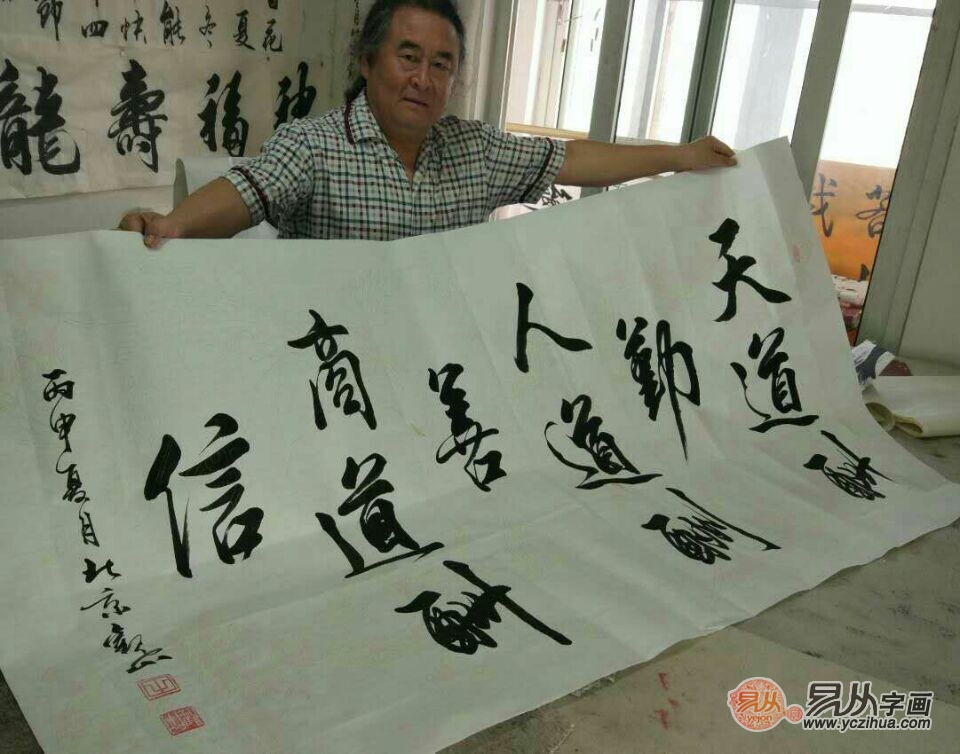 天道酬
勤
人道酬
善
商道酬
信
丙申夏月北京
龍壽福
四快能冬夏
易从字画
www.yczihua.com
易从
yczion